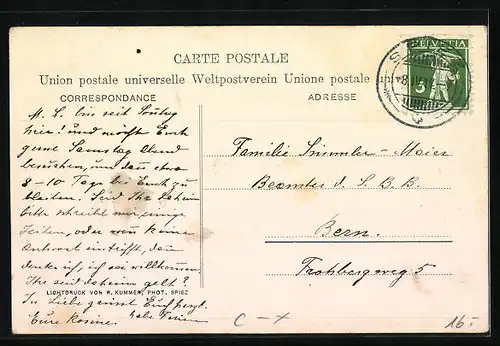 CARTE POSTALE
Union postale universelle Weltpostverein Unione postale
CORRESPONDANCE
ADRESSE
HELVETIA
5
M. L. bin seit Sontag
hier! und möcht Euch
gerne Samstag Abend
besuchen, um dan etwa
8-10 Tage bei Euch zu
bleiben! Seid Ihr daheim
bitte schreibt mir einige
Zeilen, oder wen keine
Antwort eintrifft, dan
denke ich, ich sei willkommen.
Ihr seid daheim gelt?
LICHTDRUCK VON R. KUMMER, PHOT. SPIEZ
In Liebe grüsst Euch herzl.
Eure Rosine. habe Ferien
Familie Simmler-Meier
Beamter d. S. B. B.
Bern.
Frohbergweg 5
C - x
16.-